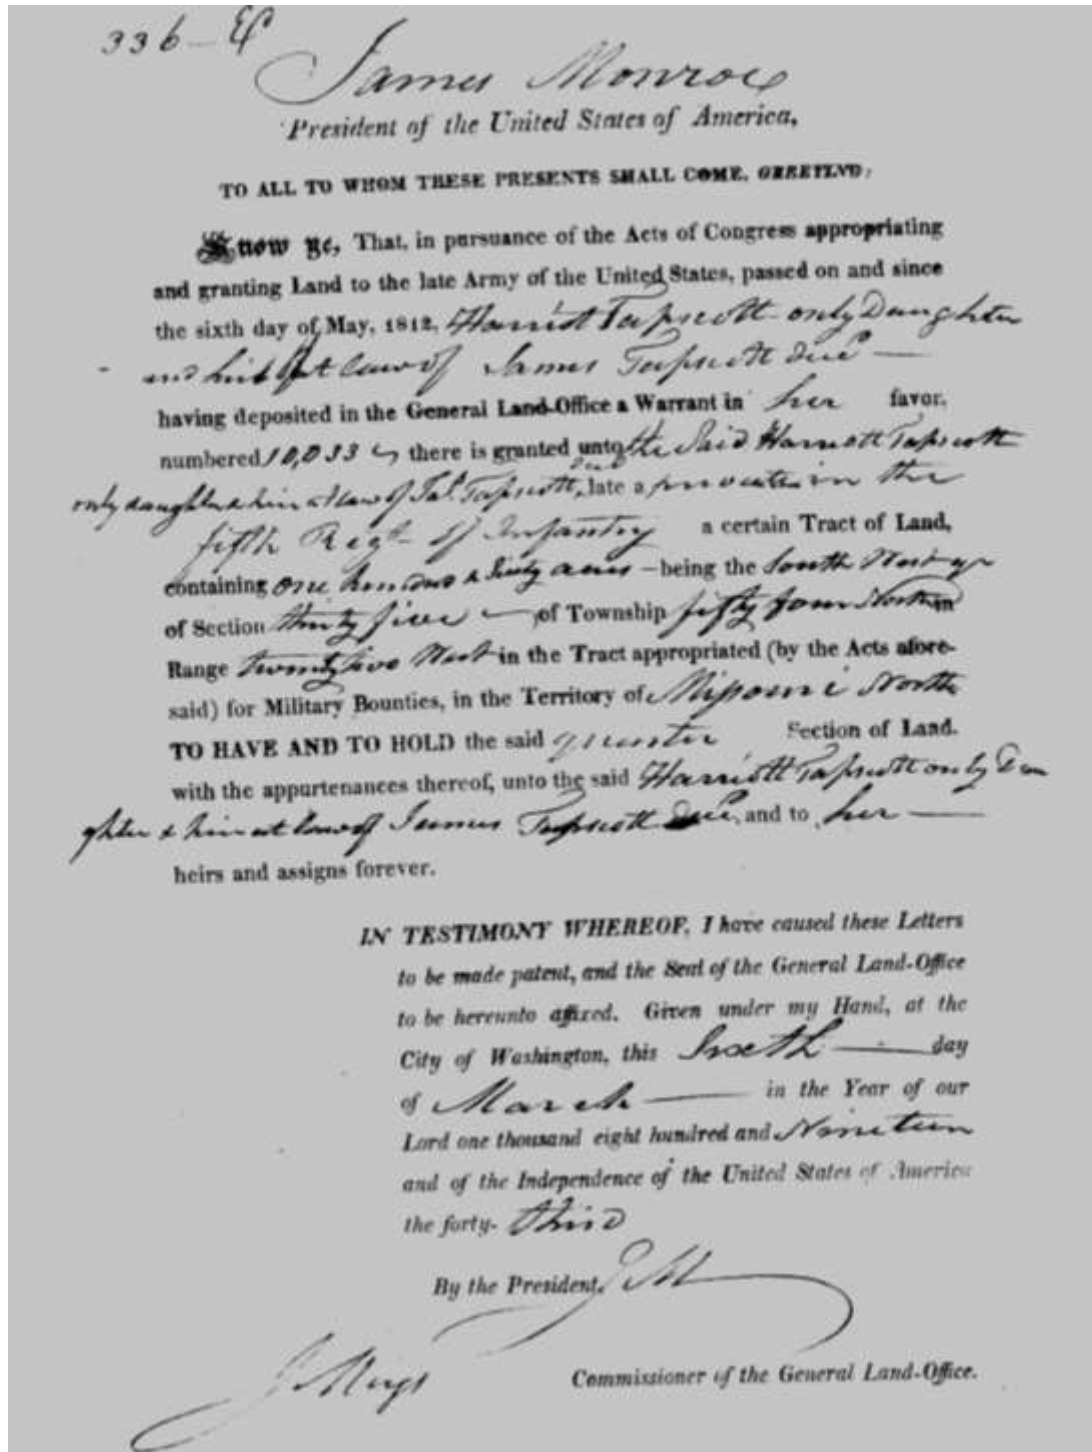 336
James Monroe
President of the United States of America,
TO ALL TO WHOM THESE PRESENTS SHALL COME, GREETING:
Know ye, That, in pursuance of the Acts of Congress appropriating
and granting Land to the late Army of the United States, passed on and since
the sixth day of May, 1812, Harriott Tapscott only Daughter
and heir at law of James Tapscott decd
having deposited in the General Land-Office a Warrant in her favor,
numbered 10,033 there is granted unto the said Harriott Tapscott
only daughter & heir at law of Jas. Tapscott, decd late a private in the
fifth Regt of Infantry a certain Tract of Land,
containing one hundred & sixty acres — being the South West qr
of Section thirty five — of Township fifty four North in
Range twenty two West in the Tract appropriated (by the Acts afore-
said) for Military Bounties, in the Territory of Missouri North
TO HAVE AND TO HOLD the said quarter Section of Land.
with the appurtenances thereof, unto the said Harriott Tapscott only Dau
ghter & heir at law of James Tapscott decd, and to her —
heirs and assigns forever.
IN TESTIMONY WHEREOF, I have caused these Letters
to be made patent, and the Seal of the General Land-Office
to be hereunto affixed. Given under my Hand, at the
City of Washington, this Sixth — day
of March — in the Year of our
Lord one thousand eight hundred and Nineteen
and of the Independence of the United States of America
the forty- third
By the President, J M
J. Meigs Commissioner of the General Land-Office.